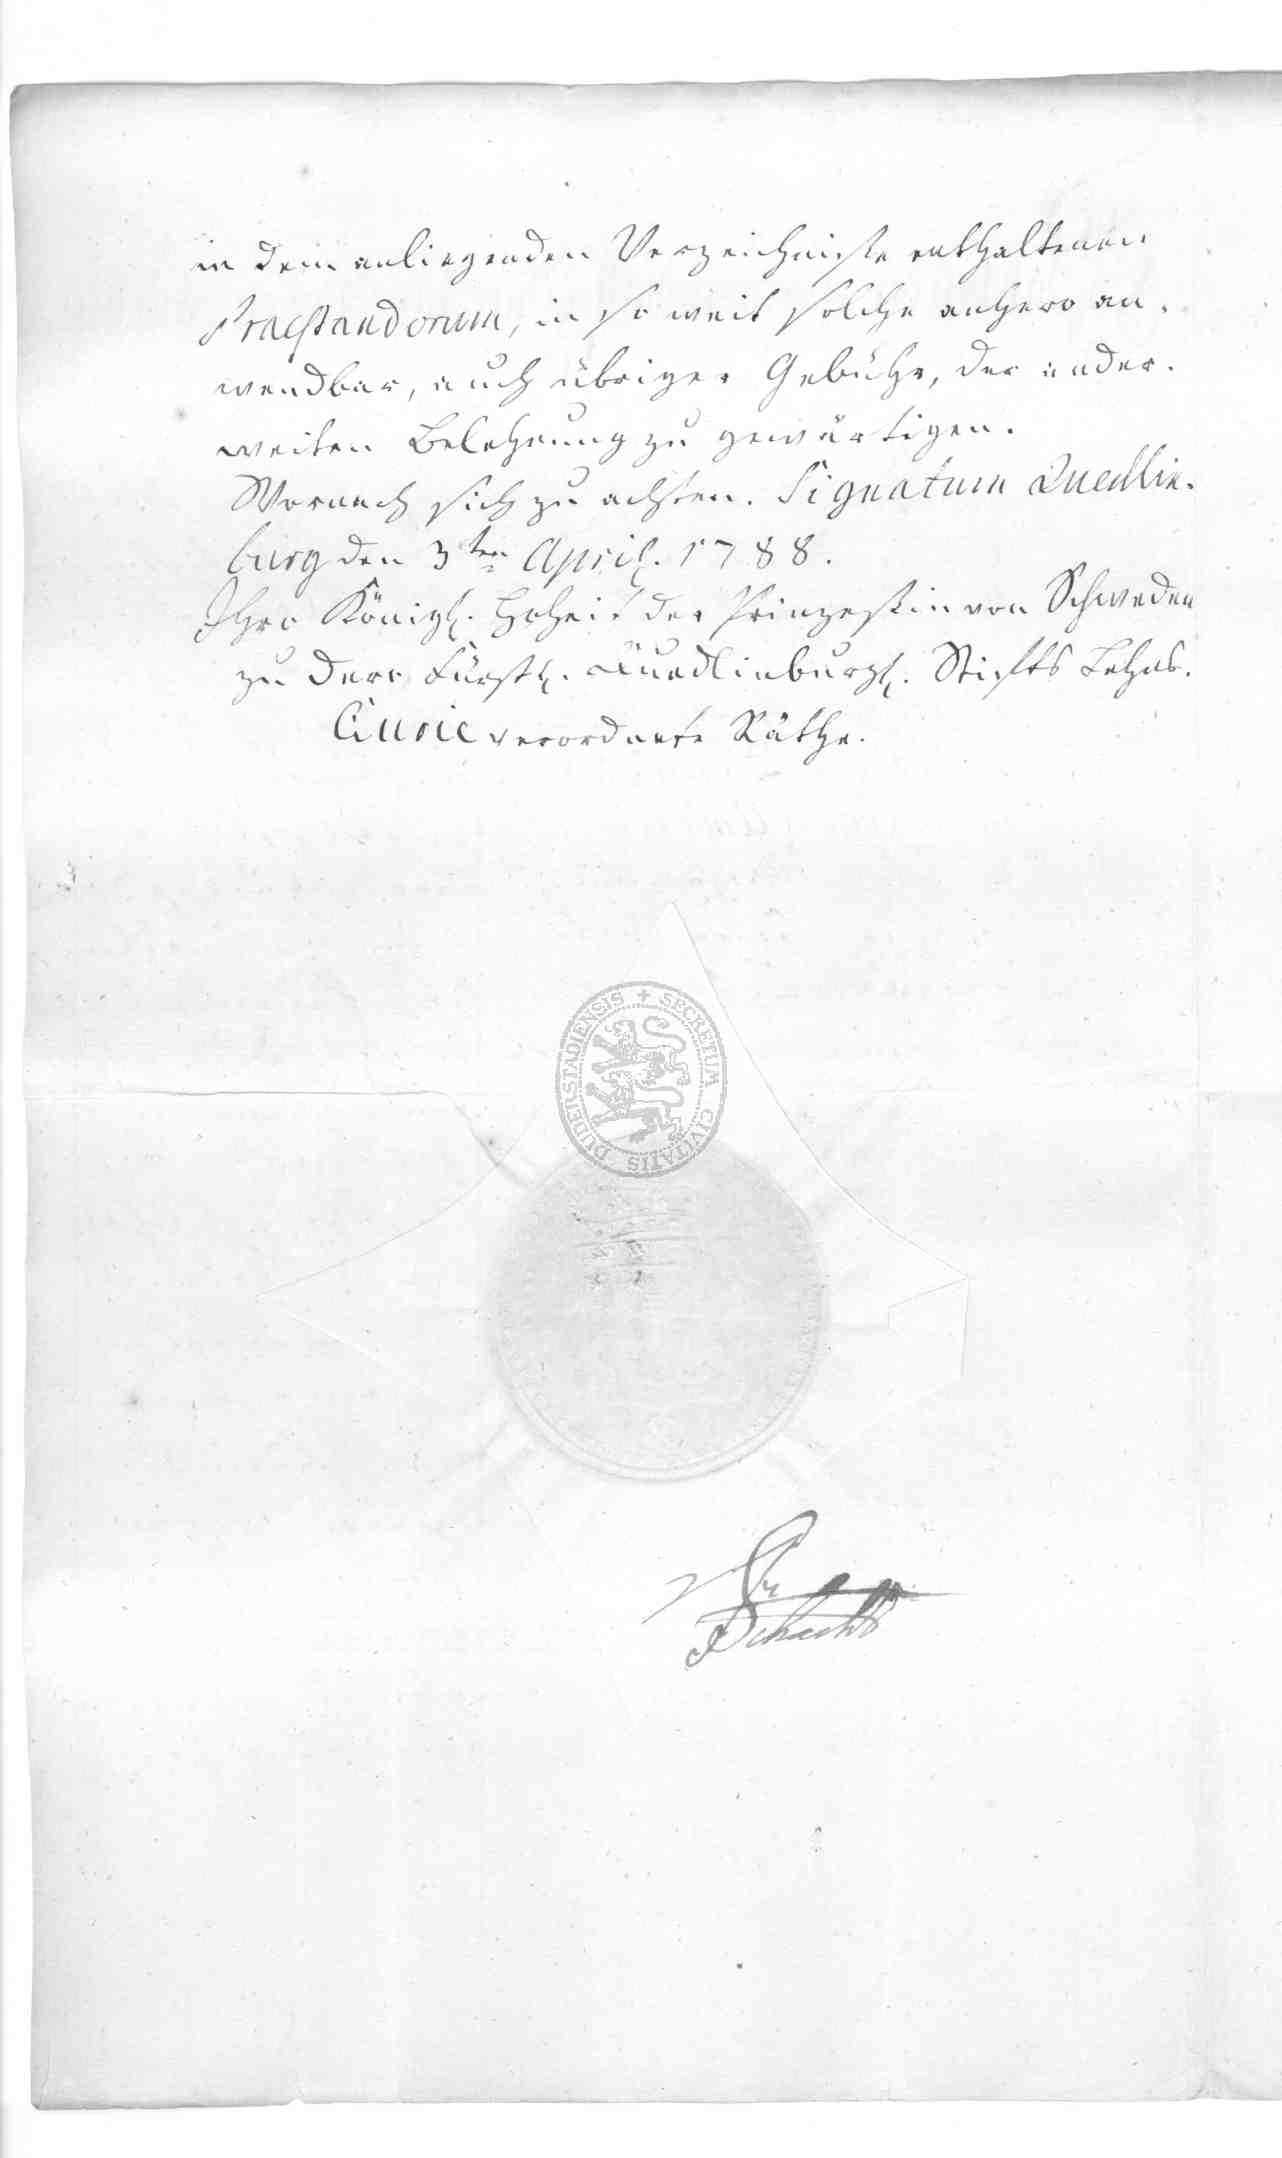 in dem anliegenden Verzeichniße enthaltenen
Praestandorum, in so weit solche anhero an-
wendbar, auch übriger Gebühr, der ander-
weiten Belehnung zu gewärtigen.
Wornach sich zu achten. Signatum Quedlin-
burg den 3ten April. 1788.
Ihro Königl. Hoheit der Prinzeßin von Schweden
zu Dero Fürstl. Quedlinburgl. Stifts Lehns-
Curie verordnete Räthe.
SECRETUM CIVITATIS DUDERSTADIENSIS